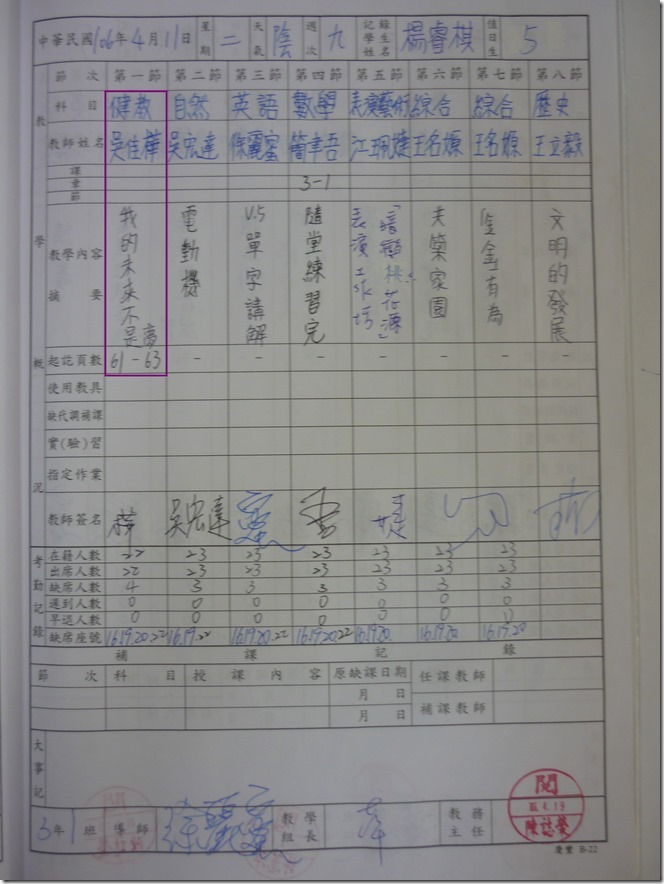 中華民國106年4月11日 星期 二 天氣 陰 週次 九 記錄學生姓名 楊睿棋 值日生 5
節次 第一節 第二節 第三節 第四節 第五節 第六節 第七節 第八節
科目 健教 自然 英語 數學 表演藝術 綜合 綜合 歷史
教師姓名 吳佳樺 吳宏達 王名嫄 王名嫄 王立毅
課章節 3-1
教學內容摘要 我的未來不是夢 電動機 V.5單字講解 隨堂練習完 「暗戀桃花源」表演工作坊 夫築家園 生金有為 文明的發展
起訖頁數 61-63 - - - - - - -
使用教具
缺代調補課
實(驗)習
指定作業
教學概況
教師簽名 樺 吳宏達
考勤記錄
在籍人數 22 23 23 23 23 23 23
出席人數 22 23 23 23 23 23 23
缺席人數 4 3 3 3 3 3 3
遲到人數 0 0 0 0 0 0 0
早退人數 0 0 0 0 0 0 0
缺席座號 16.19.20.22 16.19.22 16.19.20.22 16.19.20.22 16.19.20 16.19.20 16.19.20
補課記錄
節次 科目 授課內容 原缺課日期 任課教師
月 日
月 日 補課教師
大事記
閱
陳誌瑩
3年1班導師 教學組長 教務主任
慶豐 B-22